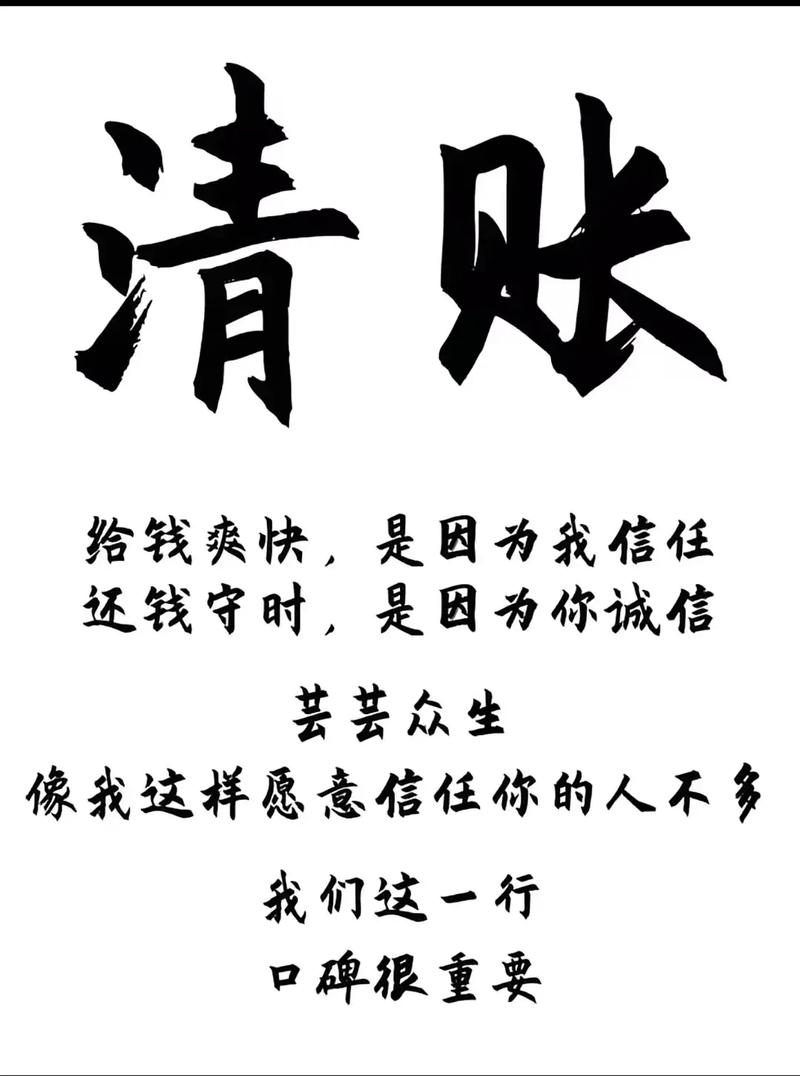 清账
给钱爽快，是因为我信任
还钱守时，是因为你诚信
芸芸众生
像我这样愿意信任你的人不多
我们这一行
口碑很重要